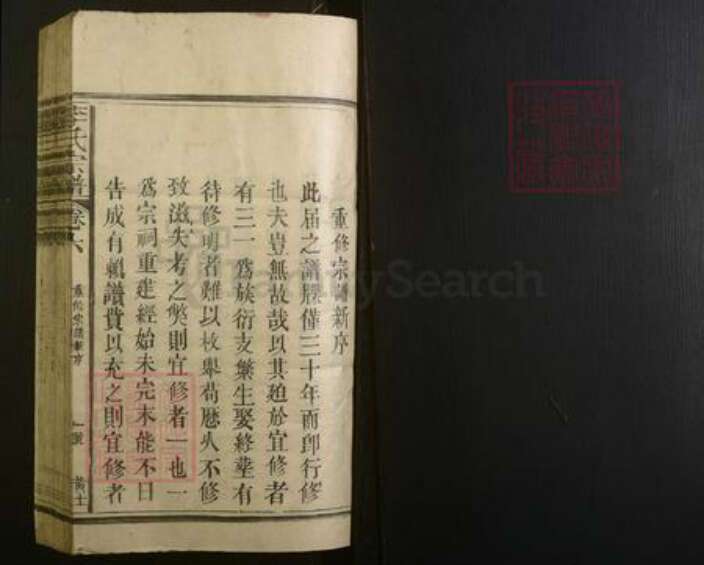 重修宗譜新序
此届之譜牒僅三十年而即行修
也夫豈無故哉以其廹於宜修者
有三一為族衍支繁生娶終塟有
待修明者難以枚舉苟歴久不修
致滋失考之獘則宜修者一也一
為宗祠重建經始未完未能不日
告成有賴讚費以充之則宜修者
李氏宗譜 卷六 重修宗譜新序 一號
FamilySearch